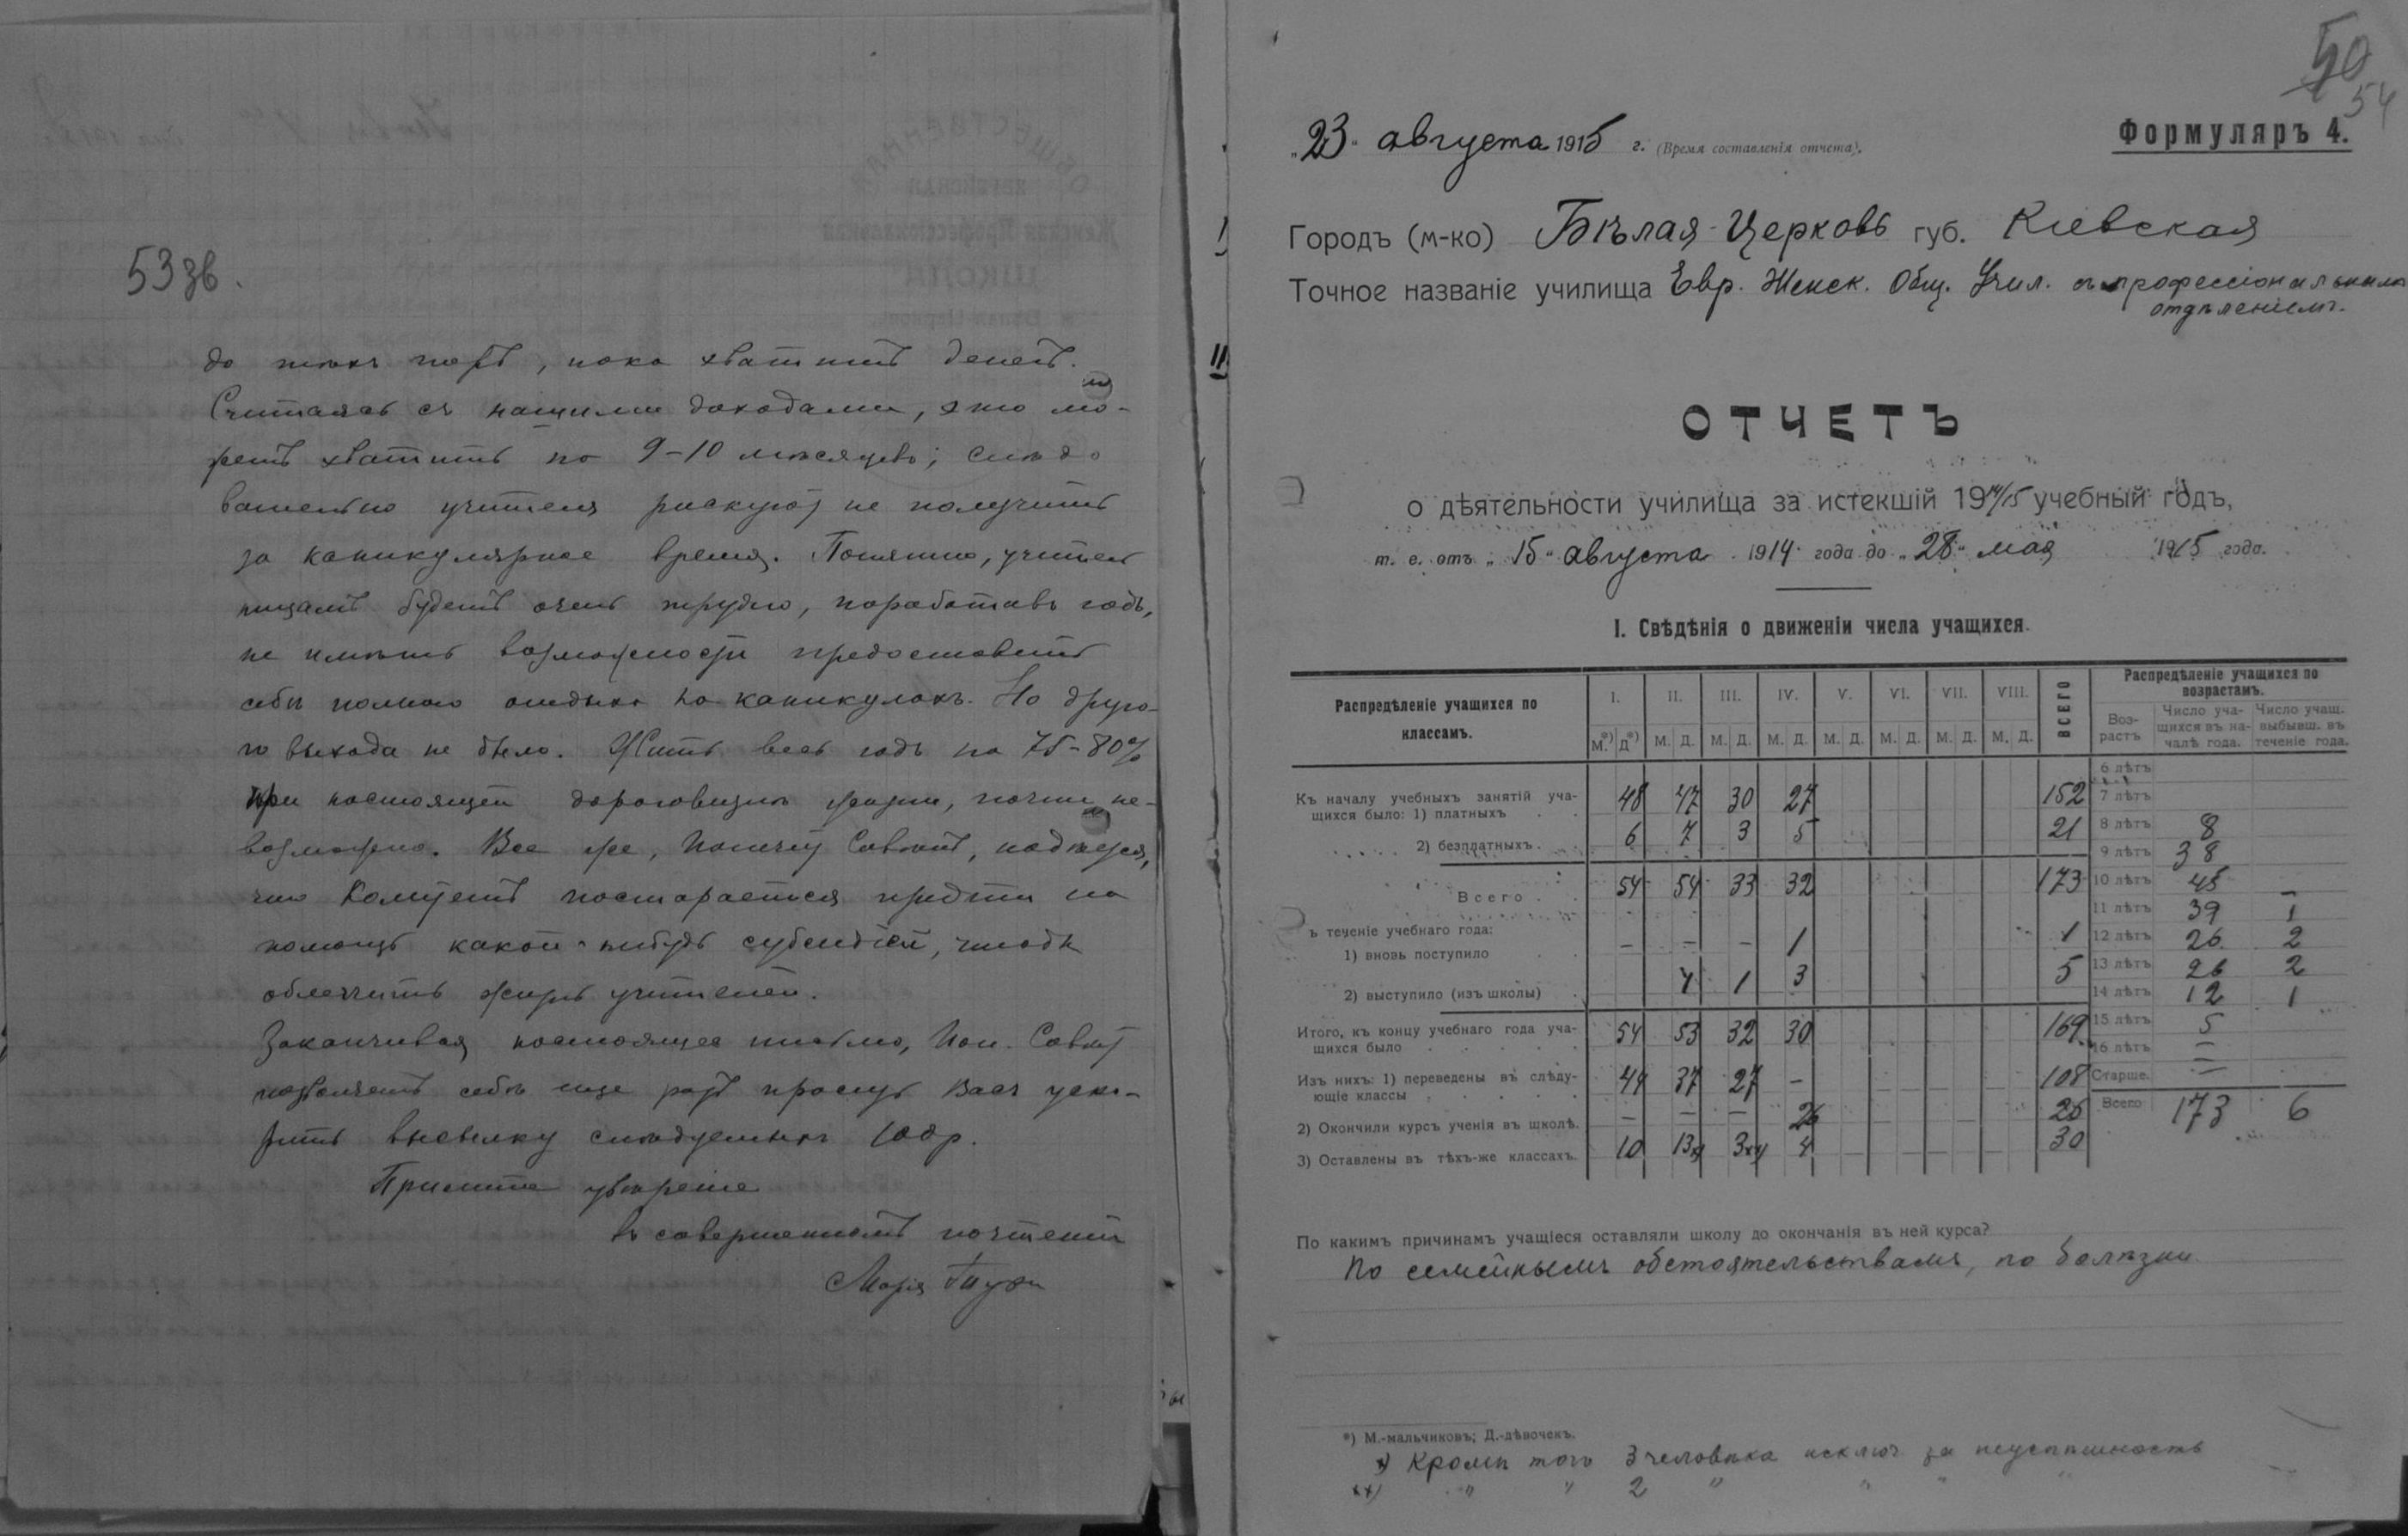 53 зв.
до тѣхъ поръ, пока хватитъ денегъ.
Считаясь съ нашими доходами, это мо-
жетъ хватить на 9-10 мѣсяцевъ; слѣдо
вательно учителя рискуютъ не получить
за каникулярное время. Понятно, учитель
ницамъ будетъ очень трудно, поработавъ годъ,
не имѣть возможности предоставить
себѣ полного отдыха на каникулахъ. Но друго-
го выхода не было. Жить весь годъ на 75-80%
при настоящей дороговизнѣ жизни, почти не-
возможно. Все же, Попечит Совѣтъ, надѣется,
что Комитетъ постарается придти на
помощь какой-нибудь субсидіей, чтобы
облегчить жизнь учителей.
Заканчивая настоящее письмо, Поп. Совѣт
позволяетъ себѣ еще разъ просить Васъ уско-
рить высылку слѣдуемыхъ 100 р.
Примите увѣреніе
въ совершенномъ почтеніи
Марія
50
54
Формуляръ 4.
„23“ августа 1915 г. (Время составленія отчета).
Городъ (м-ко) Бѣлая-Церковь губ. Кіевская
Точное названіе училища Евр. Женск. Общ. Учил. съ профессіональнымъ
отдѣленіемъ.
ОТЧЕТЪ
о дѣятельности училища за истекшій 1914/15 учебный годъ,
т. е. отъ „15“ августа 1914 года до „28“ мая 1915 года.
I. Свѣдѣнія о движеніи числа учащихся.
Распредѣленіе учащихся по классамъ. I. II. III. IV. V. VI. VII. VIII. ВСЕГО Распредѣленіе учащихся по возрастамъ.
М.*) Д*) М. Д. М. Д. М. Д. М. Д. М. Д. М. Д. М. Д. Воз-растъ Число уча-щихся въ на-чалѣ года. Число учащ. выбывш. въ теченіе года.
6 лѣтъ
Къ началу учебныхъ занятій уча-
щихся было: 1) платныхъ 48 47 30 27 152 7 лѣтъ
2) безплатныхъ 6 7 3 5 21 8 лѣтъ 8
9 лѣтъ 38
Всего 54 54 33 32 173 10 лѣтъ 45 –
11 лѣтъ 39 1
ъ теченіе учебнаго года:
1) вновь поступило – – – 1 1 12 лѣтъ 26 2
13 лѣтъ 26 2
2) выступило (изъ школы) 1 1 3 5 14 лѣтъ 12 1
Итого, къ концу учебнаго года уча-
щихся было 54 53 32 30 169 15 лѣтъ 5
16 лѣтъ –
Изъ нихъ: 1) переведены въ слѣду-
ющіе классы 44 37 27 – 108 Старше. –
2) Окончили курсъ ученія въ школѣ. – – – 26 26 Всего 173 6
3) Оставлены въ тѣхъ-же классахъ. 10 13х) 3хх) 4 30
По какимъ причинамъ учащіеся оставляли школу до окончанія въ ней курса?
По семейнымъ обстоятельствамъ, по болѣзни.
*) М.-мальчиковъ; Д.-дѣвочекъ.
х) Кромѣ того 3 человѣка исключ. за неуспѣшность
хх) " " 2 " " " "